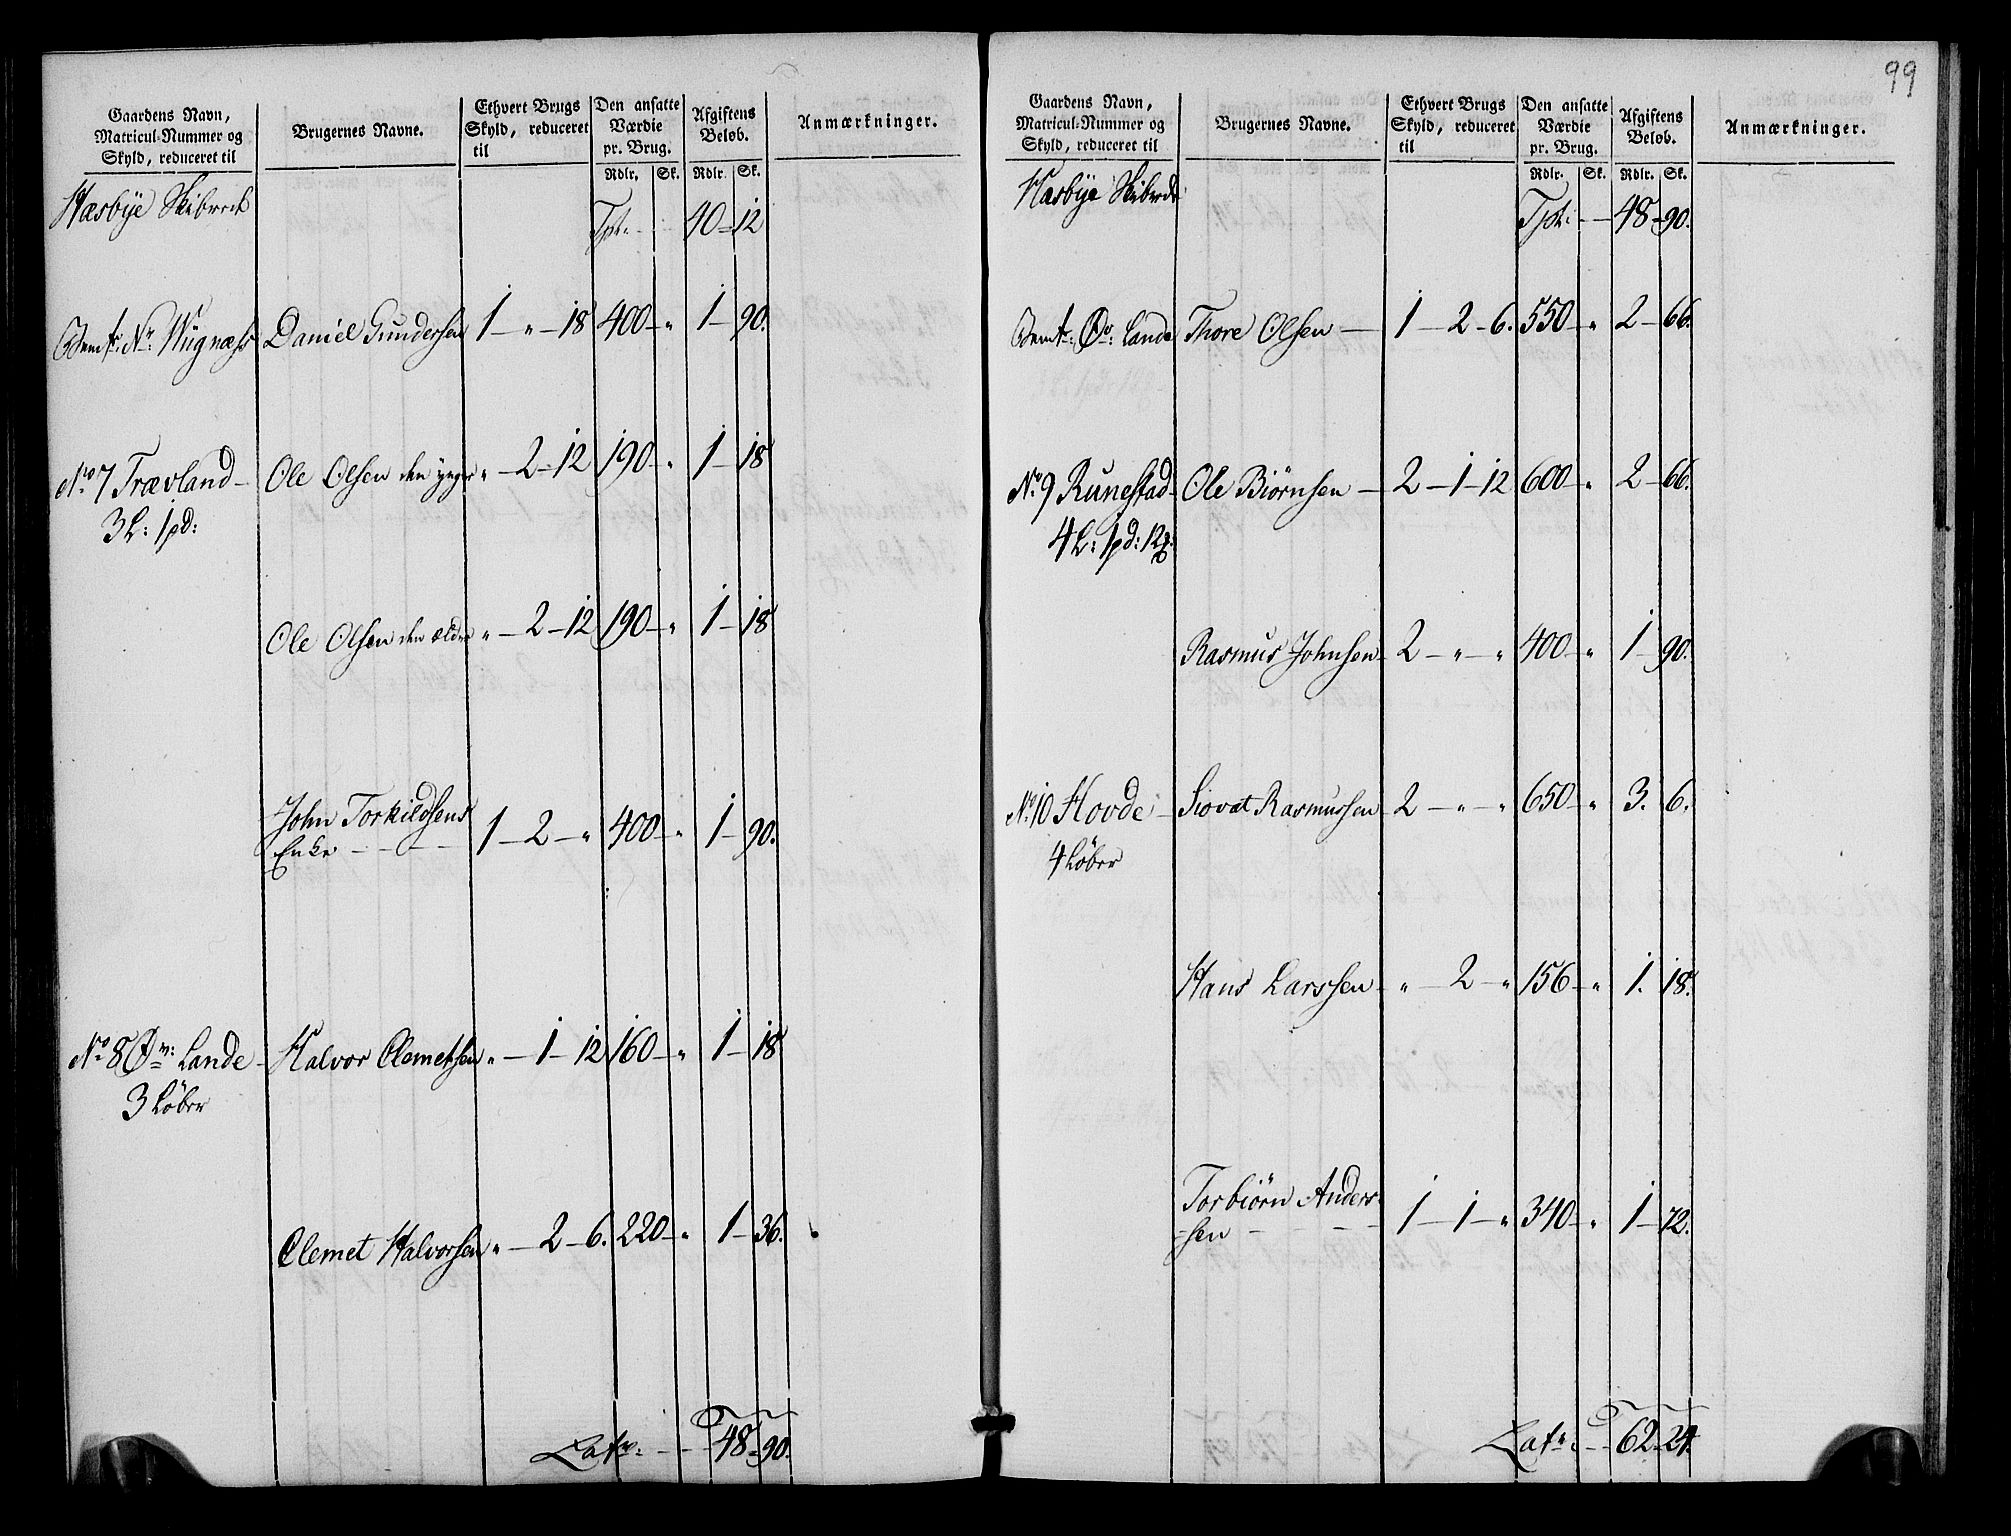 99
Gaardens Navn,
Matricul-Nummer og
Skyld, reduceret til
Brugernes Navne.
Ethvert Brugs
Skyld, reduceret
til
Den ansatte
Værdie
pr. Brug.
Rdlr. Sk.
Afgiftens
Beløb.
Rdlr. Sk.
Anmærkninger.
Hæsbÿe Skibrede
Tpt: - - 40 - 12
Daniel Gundersen 1 - " - 18 400 - " 1 - 90.
No 7 Trævland - Ole Olsen den ÿnger " - 2 - 12 190 - " 1 - 18
3 L: 1 pd:
Ole Olsen den ældre " - 2 - 12 190 - " 1 - 18
John Torkildsens
Enke - - - 1 - 2 - " 400 - " 1 - 90.
No 8 Øw: Lande - Halvor Clemetsen " - 1 - 12 160 - " 1 - 18
3 Løber
Clemet Halvorsen " - 2 - 6. 220 - " 1 - 36.
Latr: - - 48 - 90.
Gaardens Navn,
Matricul-Nummer og
Skyld, reduceret til
Brugernes Navne.
Ethvert Brugs
Skyld, reduceret
til
Den ansatte
Værdie
pr. Brug.
Rdlr. Sk.
Afgiftens
Beløb.
Rdlr. Sk.
Anmærkninger.
Hæsbÿe Skibrede
Tpt: - - 48 - 90.
Lande Thore Olsen - 1 - 2 - 6. 550 - " 2 - 66.
No 9 Runestad - Ole Biørnsen - 2 - 1 - 12 600 - " 2 - 66.
4 L: 1 pd: 12
Rasmus Johnsen - 2 - " - " 400 - " 1 - 90.
No 10 Hovde - Siovat Rasmussen 2 - " - " 650 - " 3. 6.
4 Løber
Hans Larssen - " - 2 - " 156 - " 1. 18.
Torbiørn Anders-
-sen - - - 1 - 1 - " 340 - " 1 - 72.
Latr: - - 62 - 24.